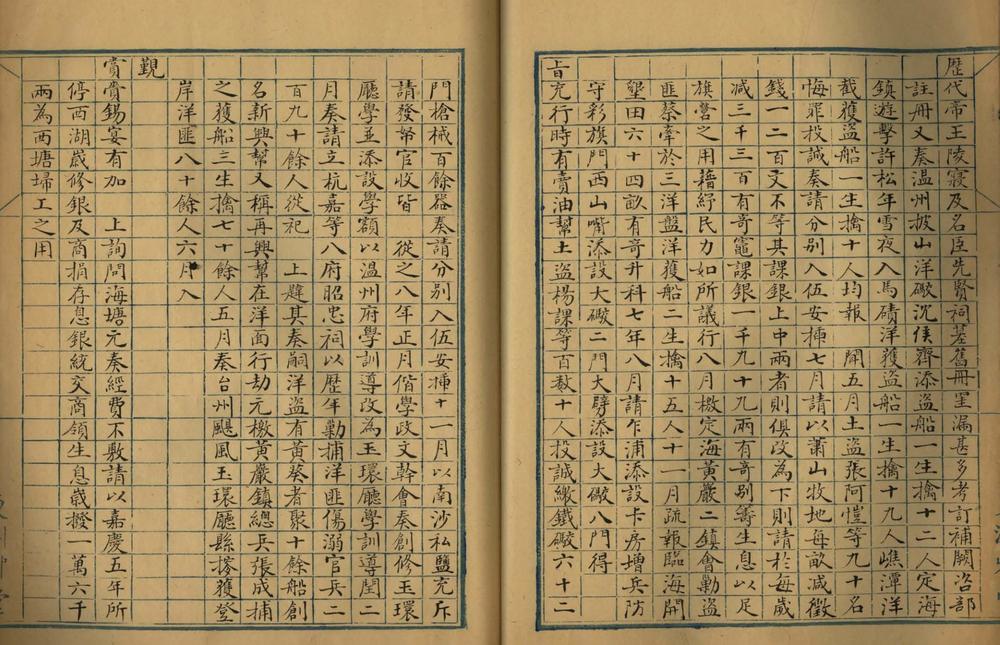 歷代帝王陵寢及名臣先賢祠墓舊冊罣漏甚多考訂補闕咨部
註冊又奏溫州披山洋礮沈侯齊添盜船一生擒十二人定海
鎮遊擊許松年雪夜入馬磧洋獲盜船一生擒十九人嶕潭洋
截獲盜船一生擒十人均報　聞五月土盜張阿愷等九十名
悔罪投誠奏請分別入伍安揷七月請以蕭山牧地每畝減徵
錢一二百文不等其課銀上中兩者則俱改為下則請於每歲
减三千三百有竒竈課銀一千九十九兩有竒别籌生息以足
旗營之用藉紓民力如所議行八月檄定海黃巖二鎮會勦盜
匪蔡牽於三洋盤洋獲船二生擒十五人十一月疏報臨海開
墾田六十四畝有竒升科七年八月請乍浦添設卡房增兵防
守彩旗門西山嘴添設大礮二門大劈添設大礮八門得
旨充行時有賣油幫土盜楊課等百㪟十人投誠繳鐵礮六十二
門槍械百餘器奏請分别入伍安揷十一月以南沙私鹽充斥
請發帑官收皆　從之八年正月偕學政文幹會奏創修玉環
廳學並添設學額以溫州府學訓導改為玉環廳學訓導閏二
月奏請立杭嘉等八府昭忠祠以歷年勦捕洋匪傷溺官兵二
百九十餘人從祀　上韙其奏嗣洋盜有黃葵者聚十餘船創
名新興幫又稱再興幫在洋面行劫元檄黃巖鎮總兵張成捕
之獲船三生擒七十餘人五月奏台州颶風玉環廳縣搭獲登
岸洋匪八十餘人六月入
覲
賞賚錫宴有加　上詢問海塘元奏經費不敷請以嘉慶五年所
停西湖歲修銀及商捐存息銀統交商領生息歲撥一萬六千
兩為西塘埽工之用